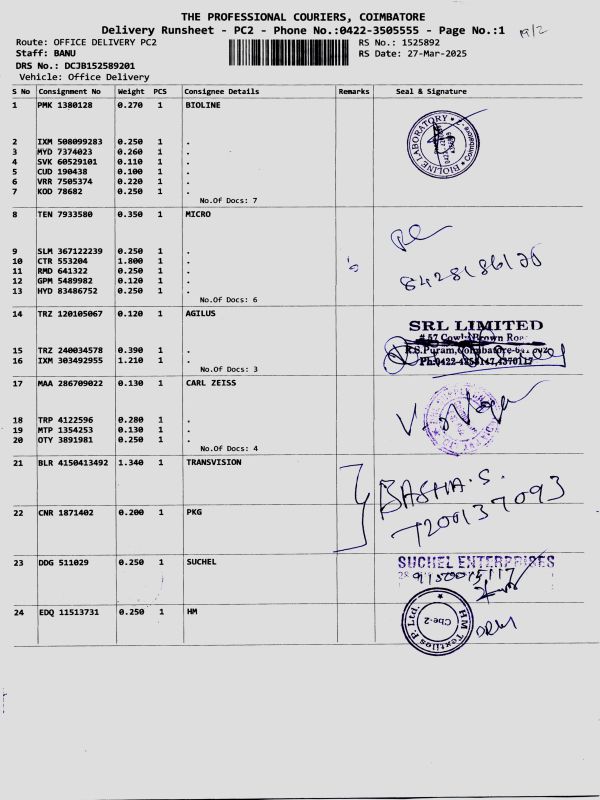 THE PROFESSIONAL COURIERS, COIMBATORE
Delivery Runsheet - PC2 - Phone No.:0422-3505555 - Page No.:1
19/2
Route: OFFICE DELIVERY PC2
RS No.: 1525892
Staff: BANU
RS Date: 27-Mar-2025
DRS No.: DCJB152589201
Vehicle: Office Delivery
S No Consignment No Weight PCS Consignee Details Remarks Seal & Signature
1 PMK 1380128 0.270 1 BIOLINE
BIOLINE LABORATORY
2 IXM 508099283 0.250 1 .
3 MYD 7374023 0.260 1 .
4 SVK 60529101 0.110 1 .
5 CUD 190438 0.100 1 .
6 VRR 7505374 0.220 1 .
7 KOD 78682 0.250 1 .
No.Of Docs: 7
8 TEN 7933580 0.350 1 MICRO
9 SLM 367122239 0.250 1 .
10 CTR 553204 1.800 1 .
11 RMD 641322 0.250 1 .
12 GPM 5489982 0.120 1 .
13 HYD 83486752 0.250 1 .
No.Of Docs: 6
14 TRZ 120105067 0.120 1 AGILUS
SRL LIMITED
# 57 Cowly Brown Road
R.S.Puram, Coimbatore-641 002
15 TRZ 240034578 0.390 1 .
16 IXM 303492955 1.210 1 .
Ph:0422-4255147,4370117
No.Of Docs: 3
17 MAA 286709022 0.130 1 CARL ZEISS
18 TRP 4122596 0.280 1 .
19 MTP 1354253 0.130 1 .
20 OTY 3891981 0.250 1 .
No.Of Docs: 4
21 BLR 4150413492 1.340 1 TRANSVISION
BASHA.S.
7200137093
22 CNR 1871402 0.200 1 PKG
23 DDG 511029 0.250 1 SUCHEL
SUCHEL ENTERPRISES
24 EDQ 11513731 0.250 1 HM
HM Textiles P. Ltd.
Cbe-2